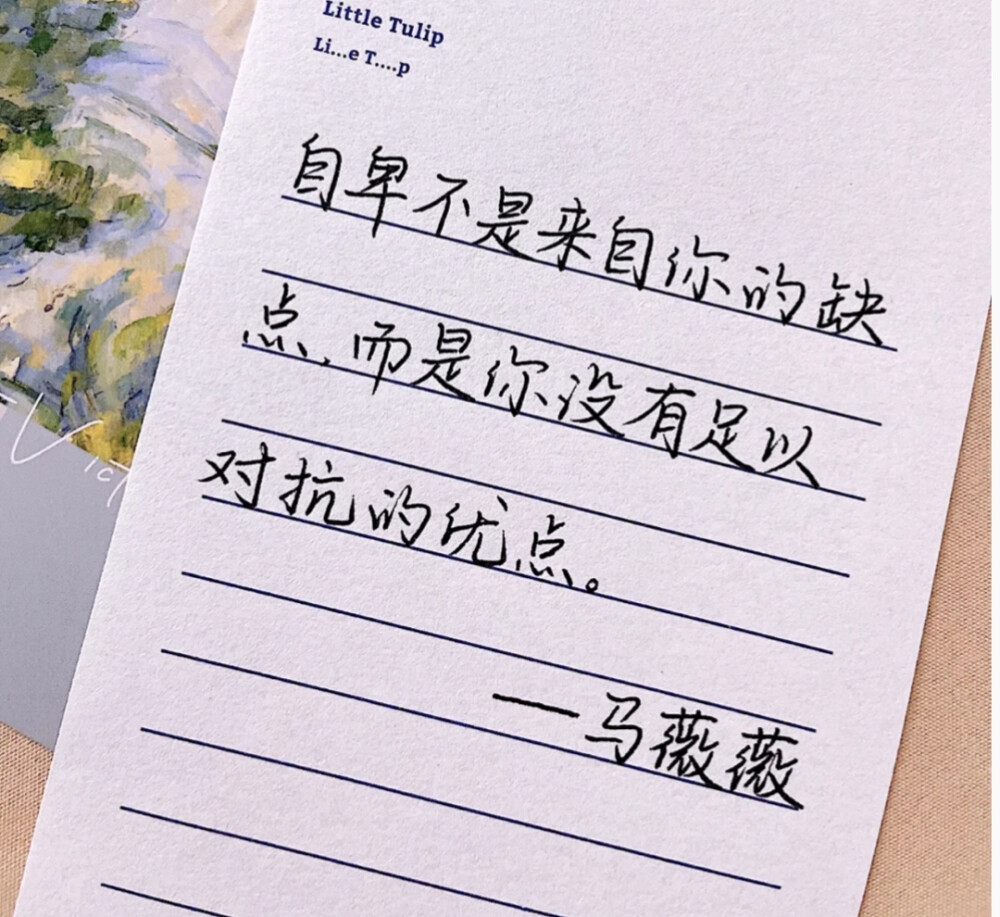 Little Tulip
Li...e T....p
自卑不是来自你的缺
点,而是你没有足以
对抗的优点。
—马薇薇